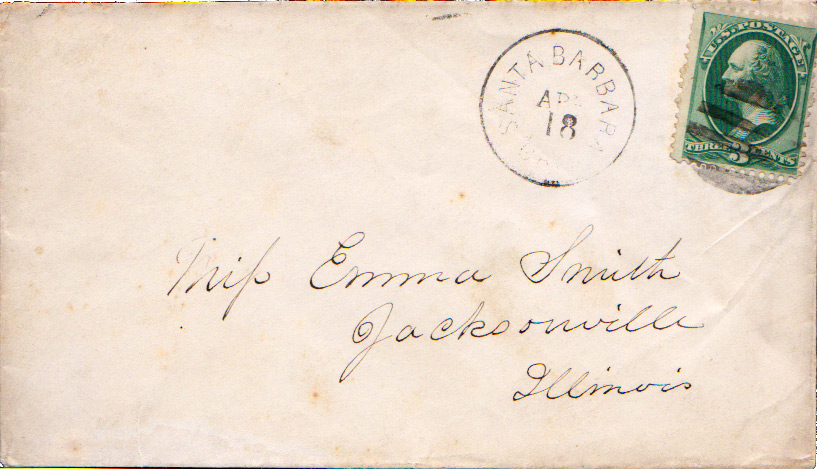 SANTA BARBARA
CAL.
APR
18
U.S. POSTAGE
THREE 3 CENTS
Miss Emma Smith
Jacksonville
Illinois